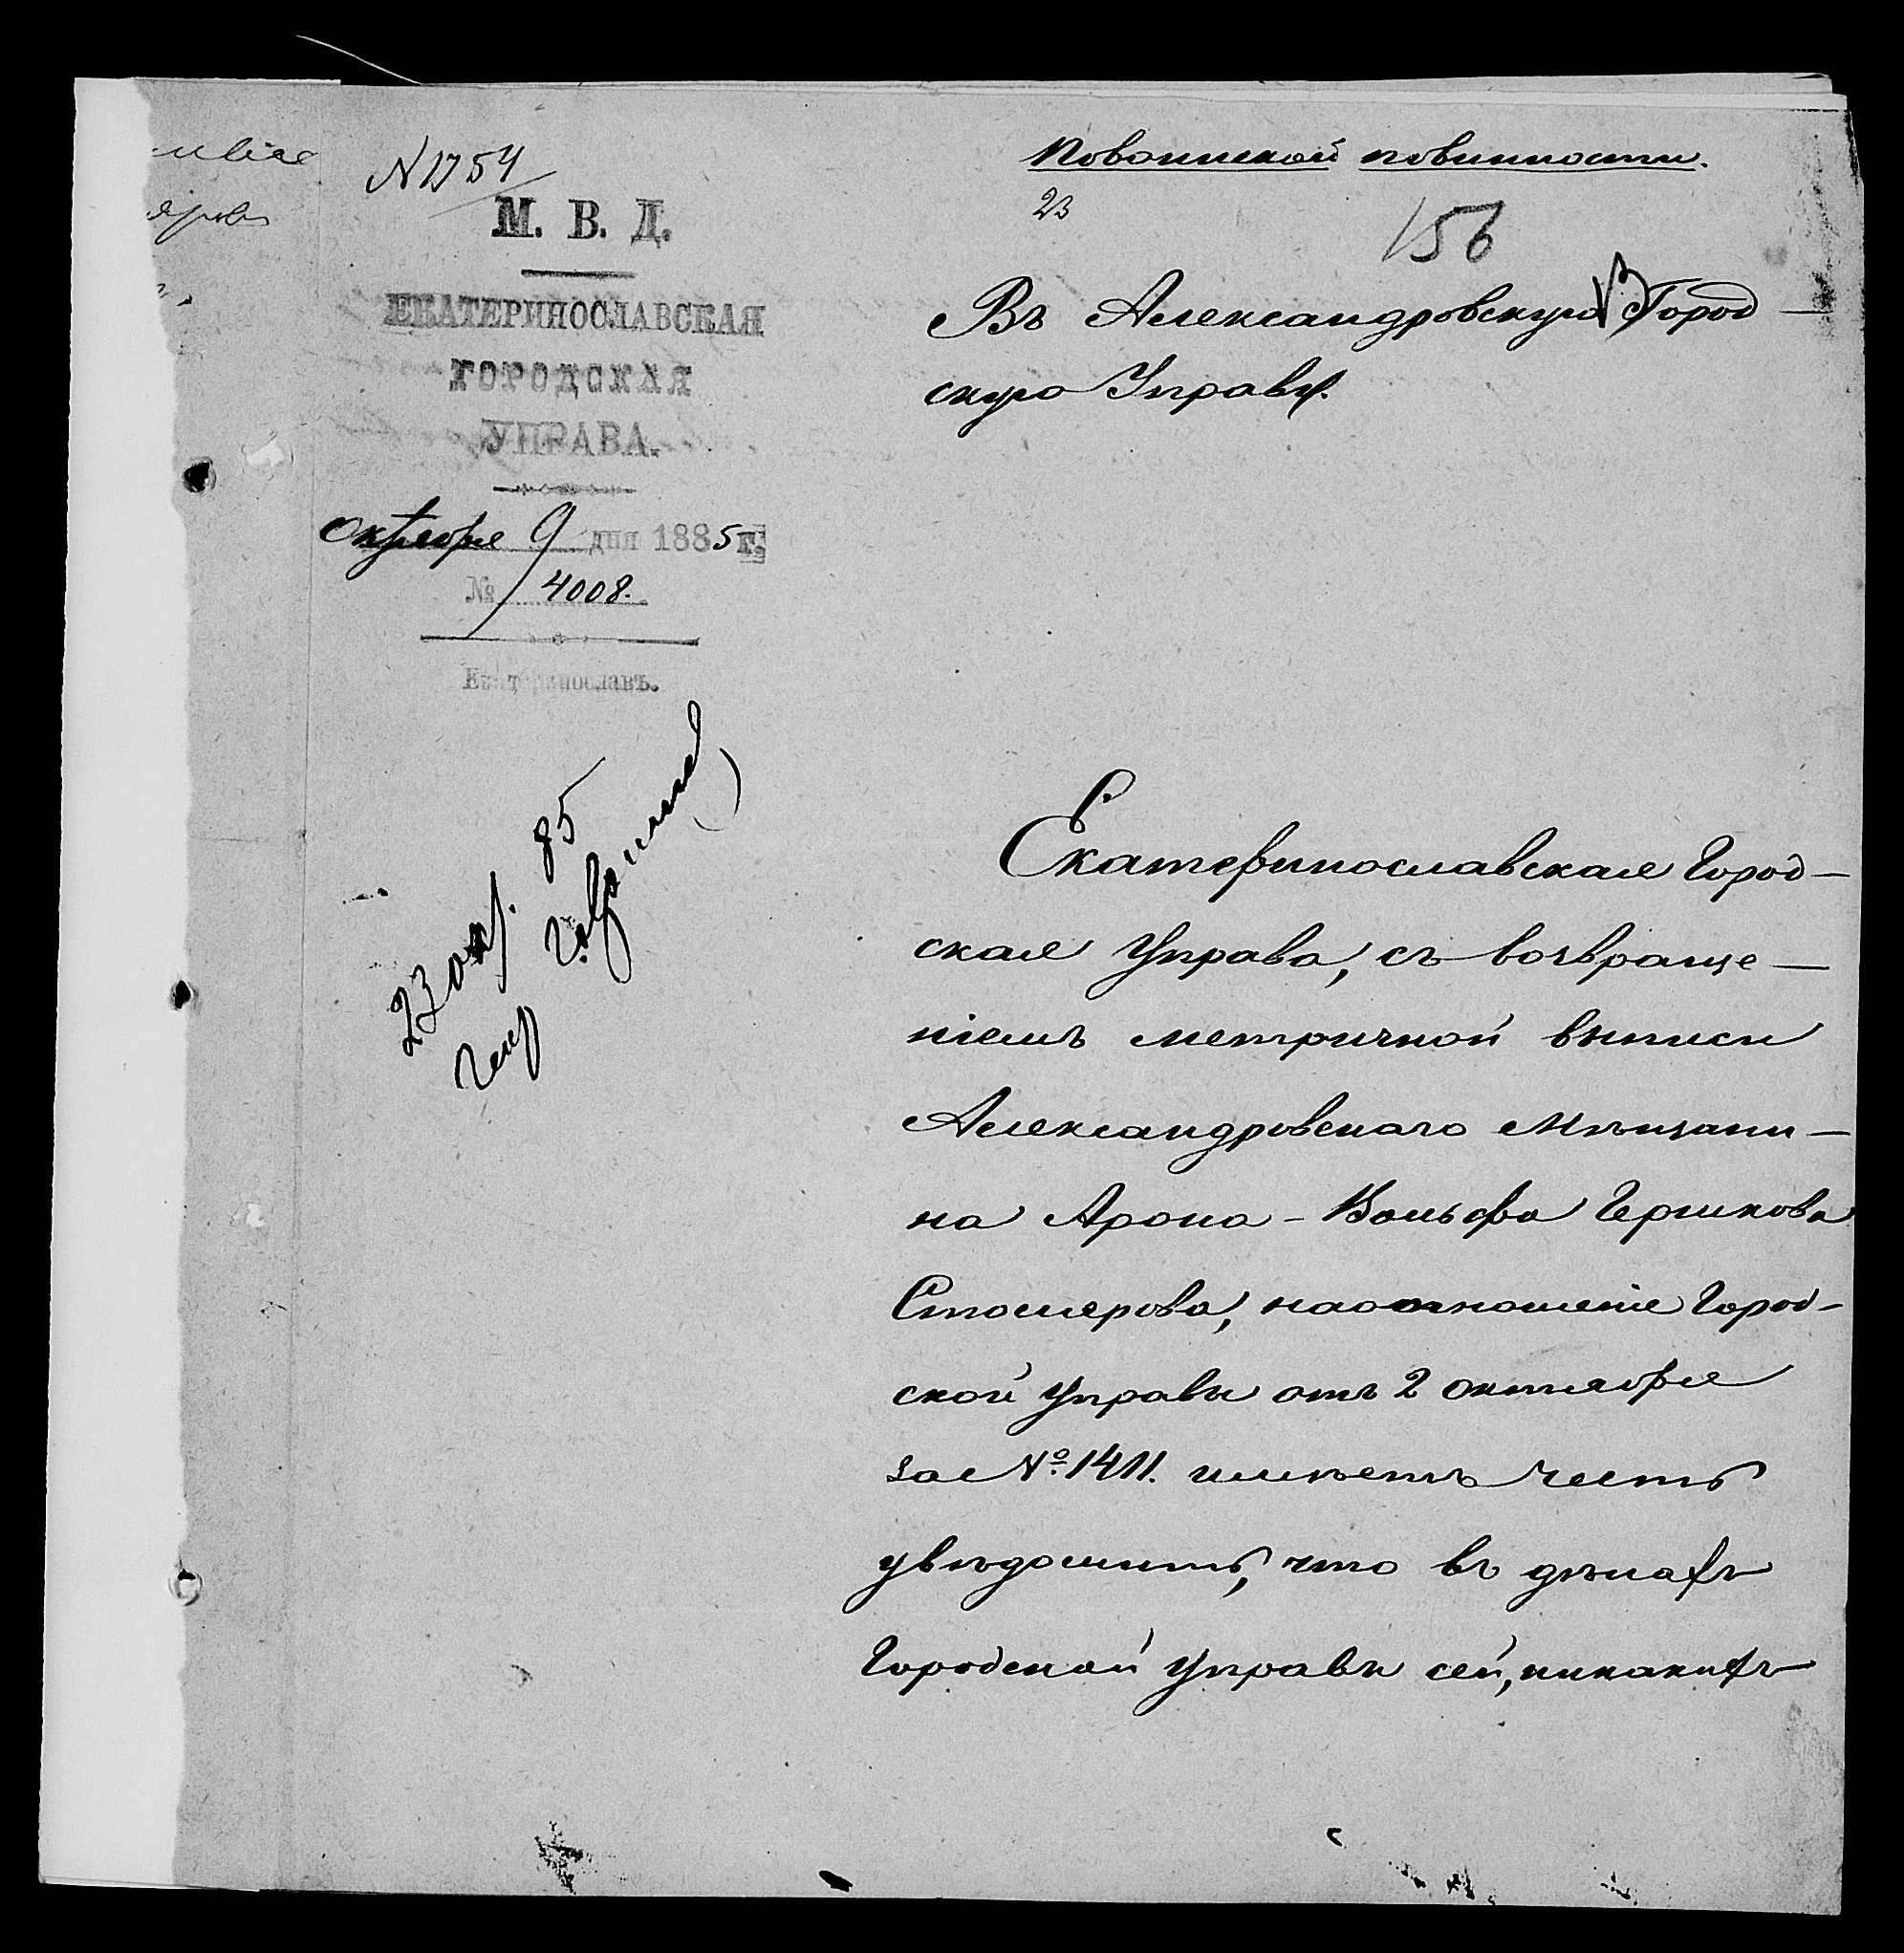 № 1754
М. В. Д.
ЕКАТЕРИНОСЛАВСКАЯ
ГОРОДСКАЯ
УПРАВА.
Октября 9 дня 1885 г.
№ 4008.
Екатеринославъ.
23 окт. 85
По воинской повинности.
23
156
Въ Александровскую Город-
скую Управу.
Екатеринославская Город-
ская Управа, съ возвраще-
ніемъ метричной выписи
Александровскаго мѣщани-
на Арона-Вольфа Гершкова
Столярова, на отношеніе Город-
ской Управы отъ 2 Октября
за №. 1411. имѣетъ честь
увѣдомить, что въ дѣлахъ
Городской Управы сей, никакихъ